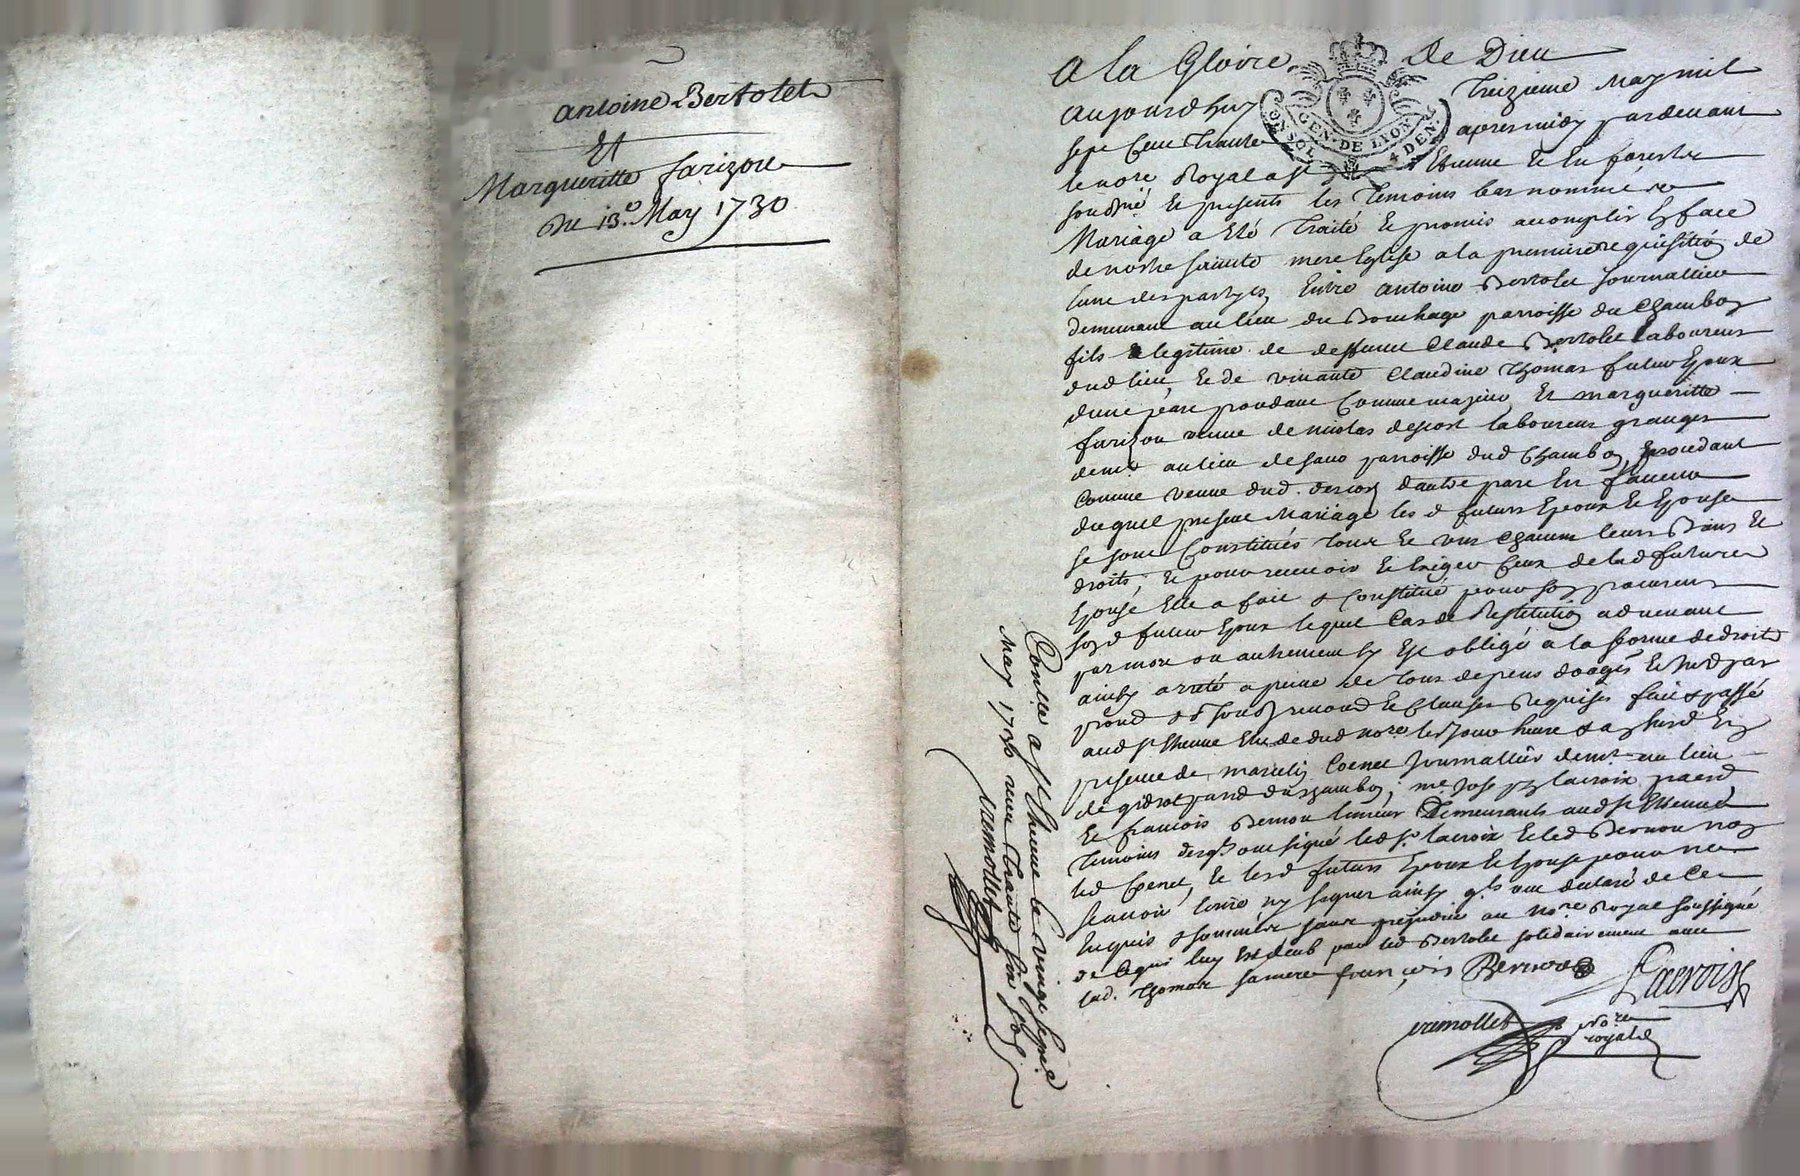 Antoine Bertolet
Et
Margueritte farizou
Du 13.e May 1730
A la Gloire de Dieu
Aujourdhuy Treizieme May mil
sept Cent Trante apresmidy pardevant
le nore Royal a St Etienne Et En forestz
soubsné Et presents les Temoins bas nommés
Mariage a Eté Traité Et promis accomplir En face
de nostre sainte mere Eglise a la premiere requisition de
lune des partyes, Entre Antoine Bertolet Journallier
demeurant au lieu du Bouchage parroisse du Chambon
fils legitime de deffunt Claude Bertolet laboureur
dud lieu, Et de vivante Claudine Thomas futur Epoux
dune part procedant Comme majeur Et margueritte
farizou veuve de nicolas descot laboureur granger
demt au lieu de parroisse dud Chambon, procedant
Comme veuve dud. dautre part En faveur
duquel present Mariage les d futurs Epoux Et Epouse
se sont Constitués tous Et uns Chacun leurs Biens Et
droits, Et pour recevoir Et Exiger Ceux de lad future
Epouse Elle a fait & Constitué pour son procureur
sond futur Epoux lequel Cas de Restitution advenant
par mort ou autrement sy Est obligé a la forme de droit
ainsy arreté a peine de tous depens doages
promd & Et Clauses Requises fait & passé
aud St Etienne Etude dud nore les Jour heure & an En
presence de marcelin Coenet Journallier demt au lieu
de parr du Chambon, me Joseph lacroix
Et francois Bernou limeur Demeurants aud St Etienne
Temoins desqls ont signé led Sr lacroix Et led Bernou non
led Coenet, Et lesd futurs Epoux Et Epouse pour ne
scavoir Ecrire ny signer ainsy qls ont declaré de Ce
Enquis & sommés sans prejudice au nore Royal soussigné
de Ce qui luy Est deub par led Bertolet solidairement avec
lad. Thomas sa mere françois Bernou Lacroix
vremollet Nore royal
Conllé a St Etienne le vingt sept
May 1730 receu trante six sols
vremollet
GEN. DE LYON
4 DEN.